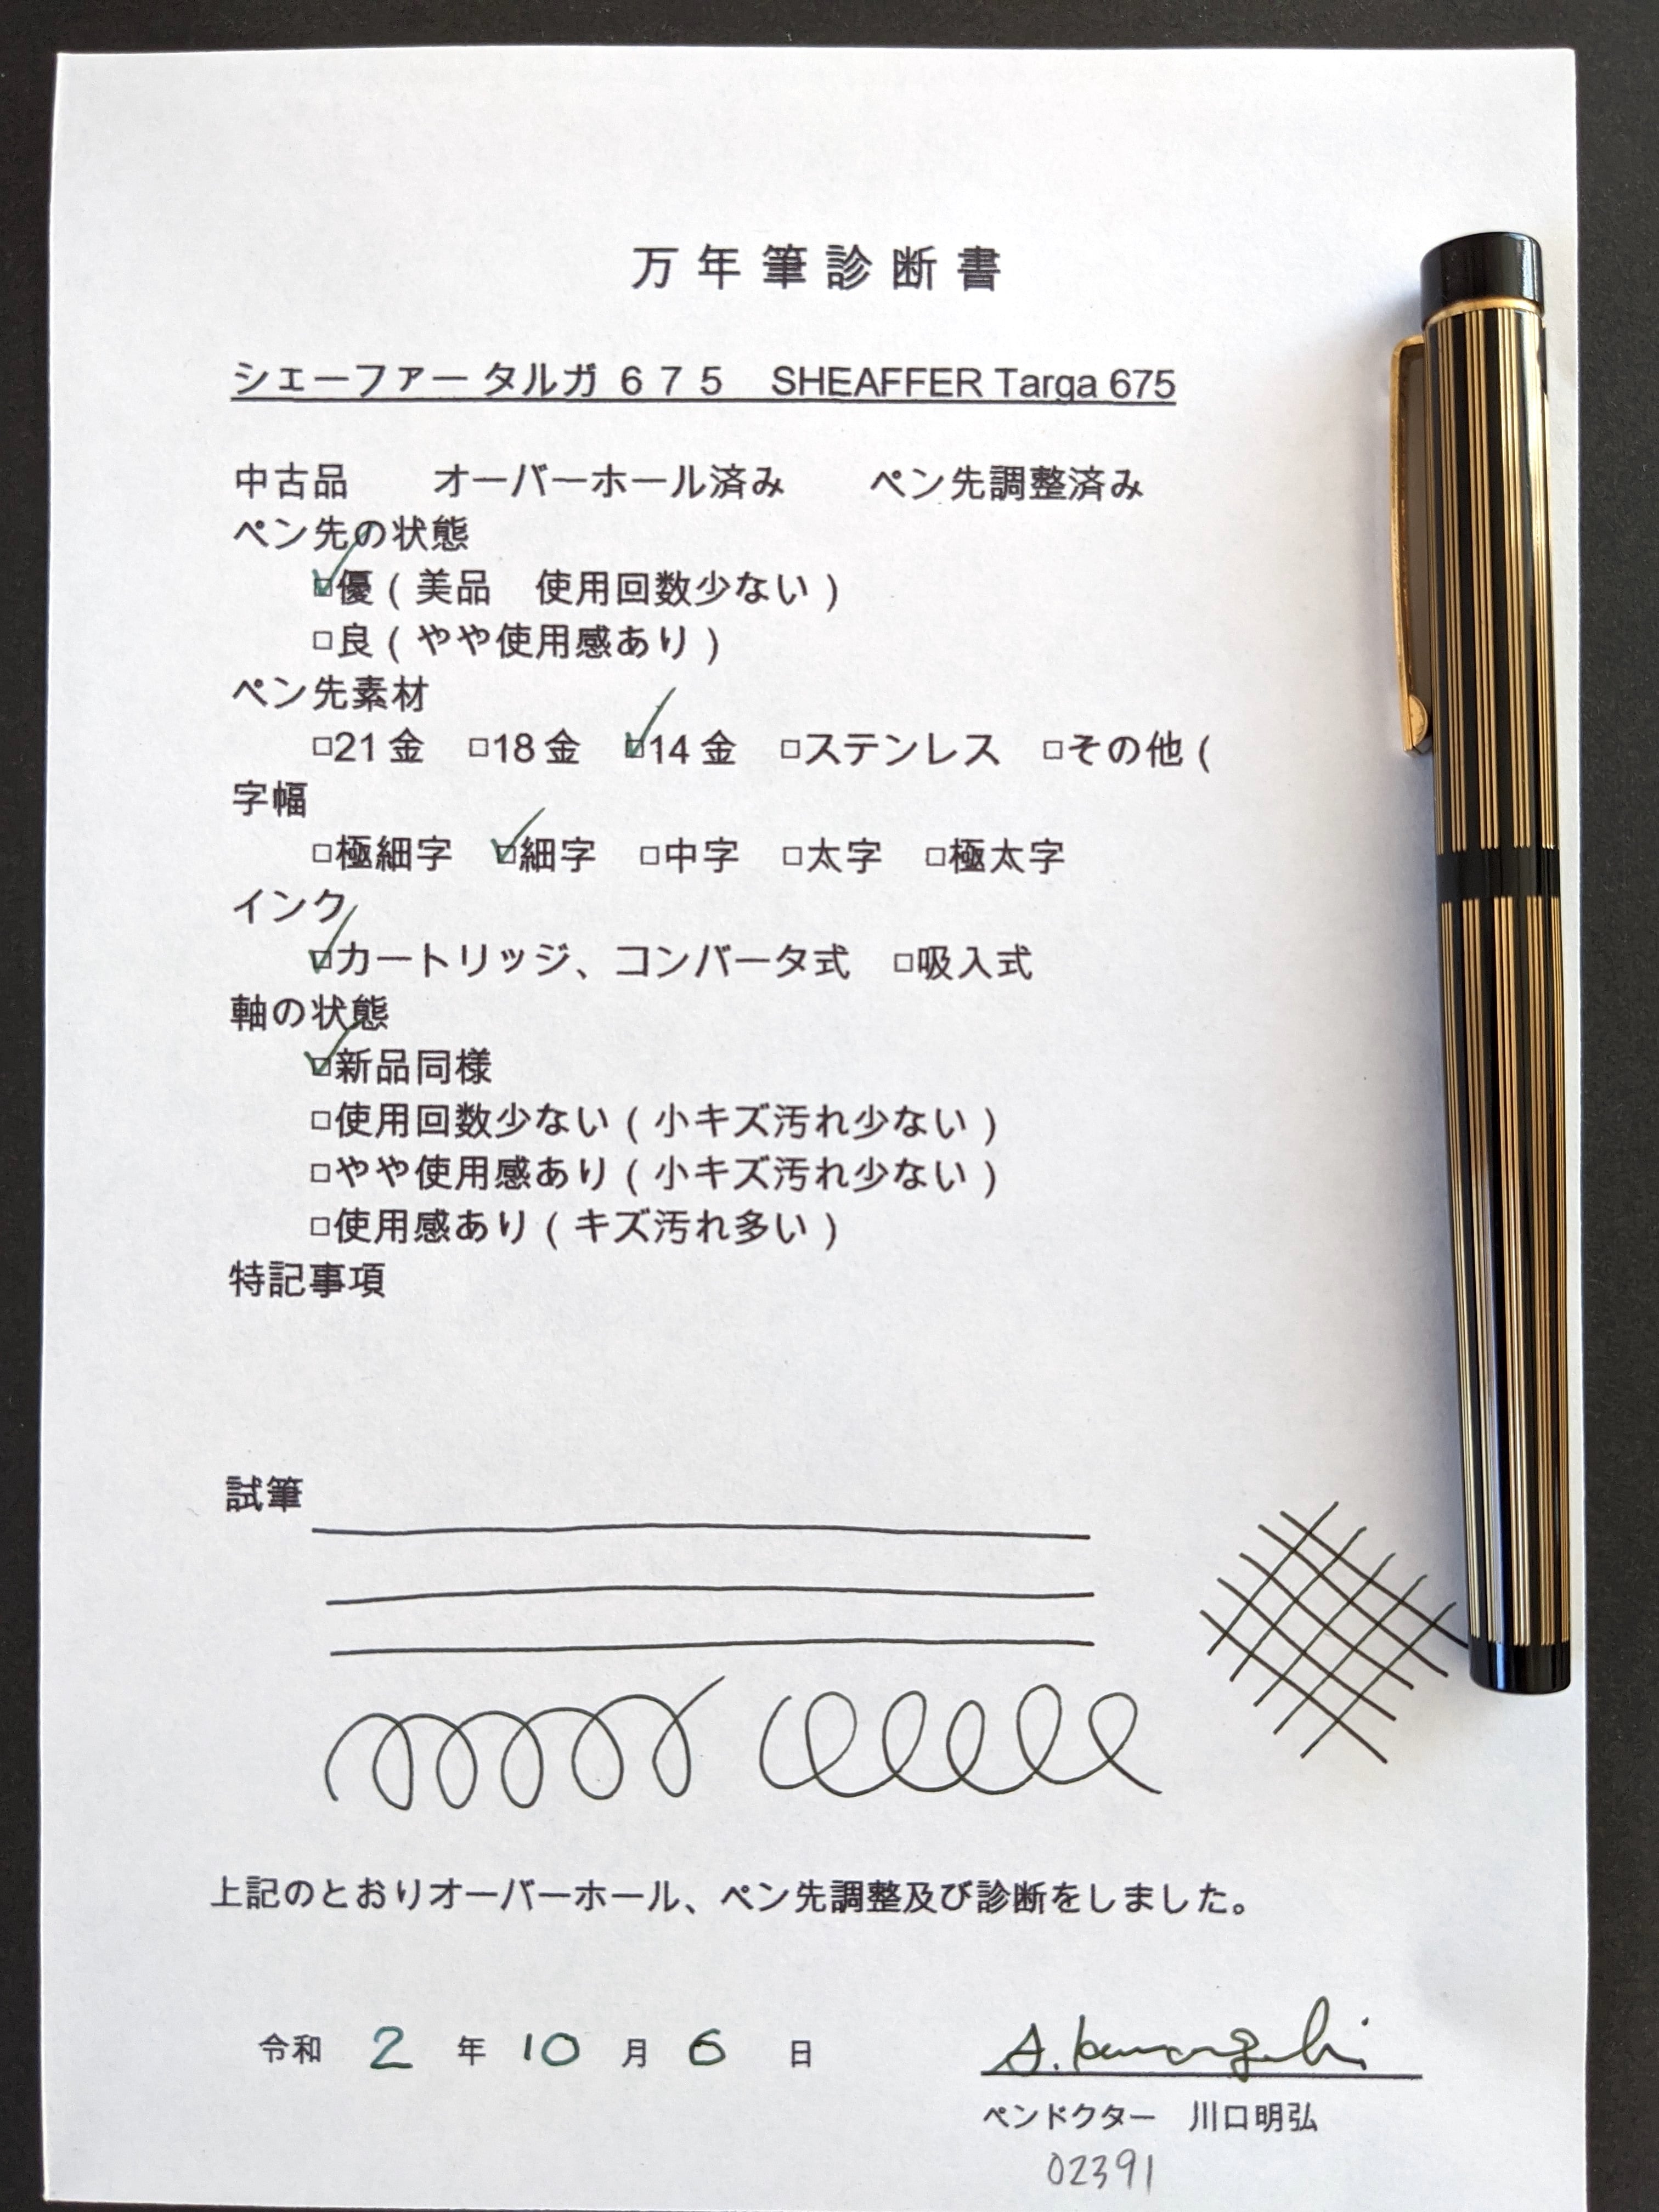 万年筆診断書
シェーファー タルガ ６７５　SHEAFFER Targa 675
中古品　　オーバーホール済み　　ペン先調整済み
ペン先の状態
☑優（美品　使用回数少ない）
□良（やや使用感あり）
ペン先素材
□21金　□18金　☑14金　□ステンレス　□その他（
字幅
□極細字　☑細字　□中字　□太字　□極太字
インク
☑カートリッジ、コンバータ式　□吸入式
軸の状態
☑新品同様
□使用回数少ない（小キズ汚れ少ない）
□やや使用感あり（小キズ汚れ少ない）
□使用感あり（キズ汚れ多い）
特記事項
試筆
上記のとおりオーバーホール、ペン先調整及び診断をしました。
令和　2　年　10　月　6　日
A. Kawaguchi
ペンドクター　川口明弘
02391